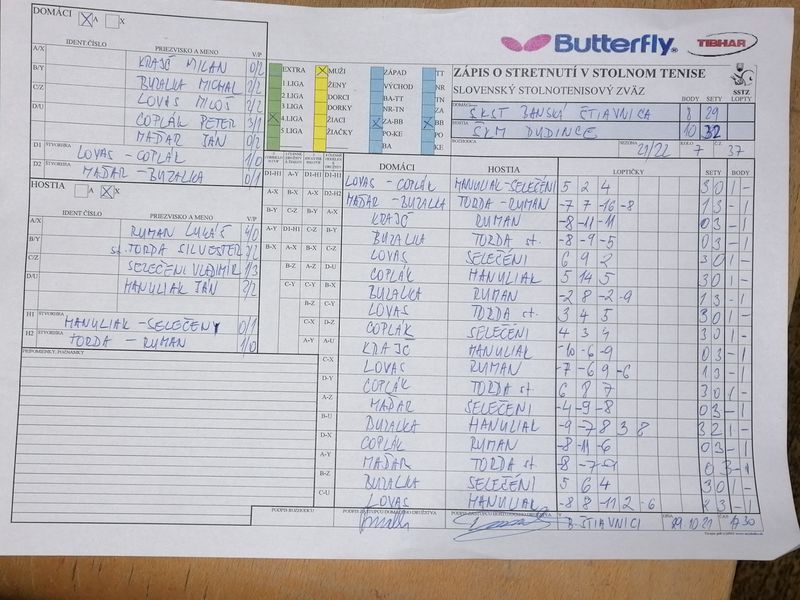 DOMÁCI X A X
Butterfly
TIBHAR
IDENT.ČÍSLO PRIEZVISKO A MENO V/P
A/X KRAJČ MILAN 0/2
B/Y BUZALKA MICHAL 2/2
C/Z LOVAS MILOŠ 2/2
D/U COPLÁK PETER 3/1
MAĎAR JÁN 0/2
D1 ŠTVORHRA LOVAS - COPLÁK 1/0
D2 ŠTVORHRA MAĎAR - BUZALKA 0/1
EXTRA
1 LIGA
2 LIGA
3 LIGA
4 LIGA
5 LIGA
MUŽI
ŽENY
DORCI
DORKY
ŽIACI
ŽIAČKY
ZÁPAD
VÝCHOD
BA-TT
NR-TN
ZA-BB
PO-KE
BA
TT
NR
TN
ZA
BB
PO
KE
ZÁPIS O STRETNUTÍ V STOLNOM TENISE
SLOVENSKÝ STOLNOTENISOVÝ ZVÄZ
SSTZ
BODY SETY LOPTY
DOMÁCI ŠKST BANSKÁ ŠTIAVNICA 8 29
HOSTIA ŠKM DUDINCE 10 32
ROZHODCA SEZÓNA 21/22 KOLO 7 Č.Z. 37
HOSTIA A X X
IDENT.ČÍSLO PRIEZVISKO A MENO V/P
A/X RUMAN LUKÁŠ 4/0
B/Y st. TORDA SILVESTER 2/2
C/Z SELEČÉNI VLADIMÍR 1/3
D/U MANULIAK JÁN 2/2
H1 ŠTVORHRA MANULIAK - SELEČENY 0/1
H2 ŠTVORHRA TORDA - RUMAN 1/0
PRIPOMIENKY, POZNÁMKY
DOMÁCI HOSTIA LOPTIČKY SETY BODY
LOVAS - COPLÁK MANULIAK-SELEČÉNI 5 2 4 3 0 1 -
MAĎAR - BUZALKA TORDA - RUMAN -7 7 -16 -8 1 3 - 1
KRAJČ RUMAN -8 -11 -11 0 3 - 1
BUZALKA TORDA st. -8 -9 -5 0 3 - 1
LOVAS SELEČÉNI 6 9 2 3 0 1 -
COPLÁK MANULIAK 5 14 5 3 0 1 -
BUZALKA RUMAN -2 8 -2 -9 1 3 - 1
LOVAS TORDA st. 3 4 5 3 0 1 -
COPLÁK SELEČÉNI 4 3 4 3 0 1 -
KRAJČ MANULIAK -10 -6 -9 0 3 - 1
LOVAS RUMAN -7 -6 9 -6 1 3 - 1
COPLÁK TORDA st. 6 8 7 3 0 1 -
MAĎAR SELEČÉNI -4 -9 -8 0 3 - 1
BUZALKA MANULIAK -9 -7 8 3 8 3 2 1 -
COPLÁK RUMAN -8 -11 -6 0 3 - 1
MAĎAR TORDA st. -8 -7 -9 0 3 - 1
BUZALKA SELEČÉNI 5 6 4 3 0 1 -
LOVAS MANULIAK -8 8 -11 2 -6 2 3 - 1
PODPIS ROZHODCU PODPIS ZÁSTUPCU DOMÁCEHO DRUŽSTVA PODPIS ZÁSTUPCU HOSŤUJÚCEHO DRUŽSTVA
V B. ŠTIAVNICI DŇA 29 10 21 ČAS 19 30